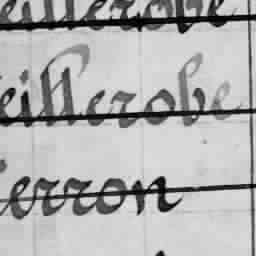 eillerobe
eillerobe
erron